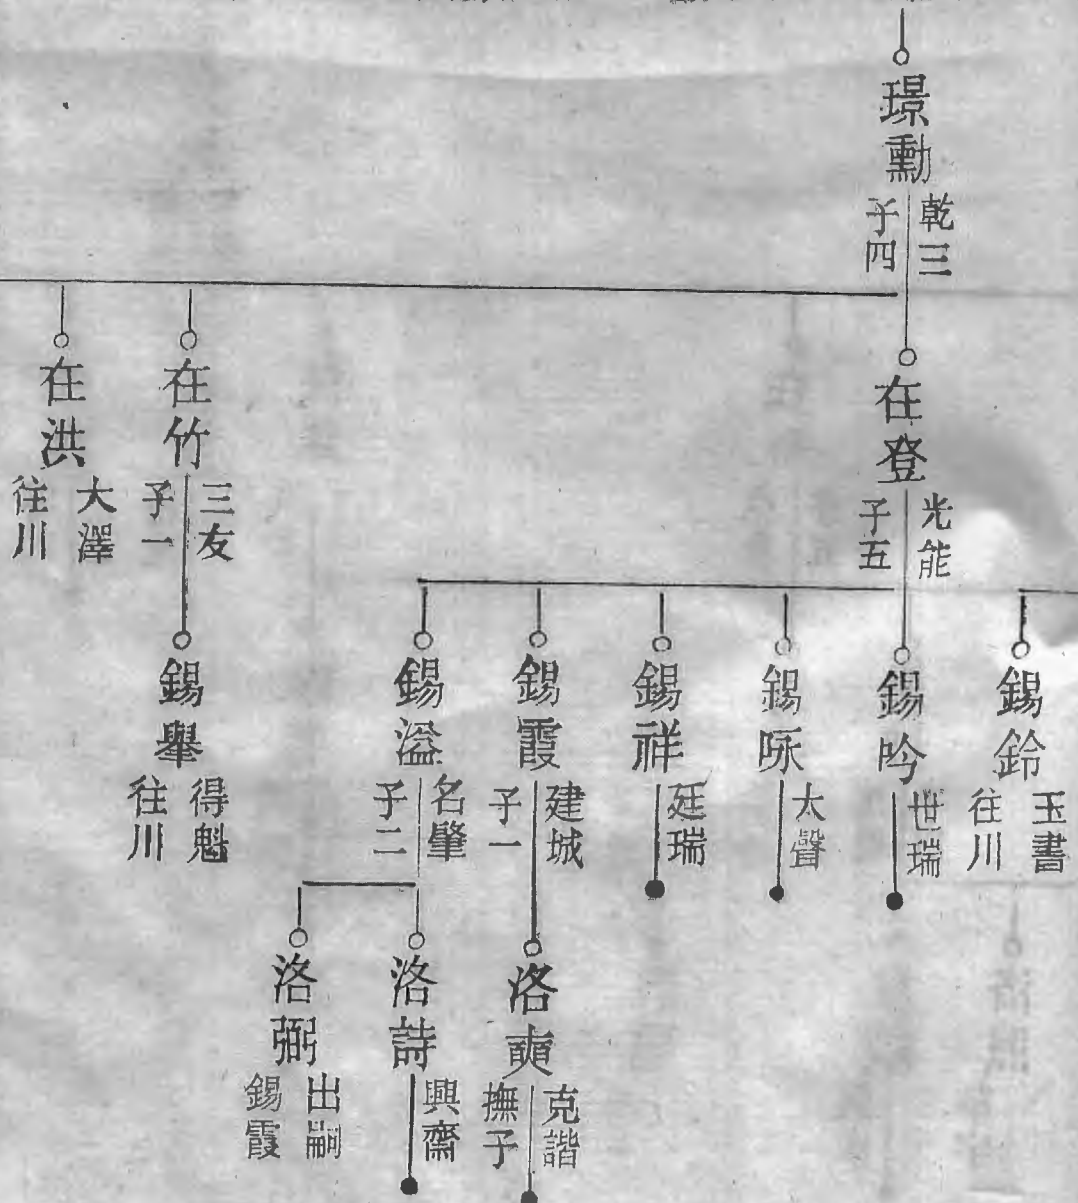 璟勳
乾三
子四
在登
光能
子五
在竹
三友
子一
在洪
大澤
往川
錫鈴
玉書
往川
錫吟
世瑞
錫咏
太聲
錫祥
廷瑞
錫霞
建城
子一
錫溢
名肇
子二
錫舉
得魁
往川
洛奭
克諧
撫子
洛詩
興齋
洛弼
出嗣
錫霞